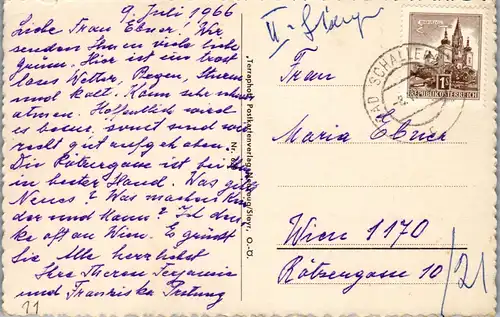 9. Juli 1966
Liebe Frau Ebner, Wir
senden Ihnen viele liebe
Grüße. Hier ist ein trost
loses Wetter, Regen, Sturm
und kalt. Kann sehr
atmen. Hoffentlich wird
es besser, sonst sind wir
recht gut aufgehoben.
Die Rötzergasse ist bei
in bester Hand. Was gibt
Neues? Was machen Kin
der und Mann? Ich den
ke oft an Wien. Es grüßt
Sie Alle herzlichst
Ihre
und Franziska
11
"Terraphoto" Postkartenverlag Neuzeug/Steyr, O.-Ö.
Nr.
II. Stiege
BAD SCHALLER
1S
REPUBLIK ÖSTERREICH
Frau
Maria Ebner
Wien 1170
Rötzergasse 10/21